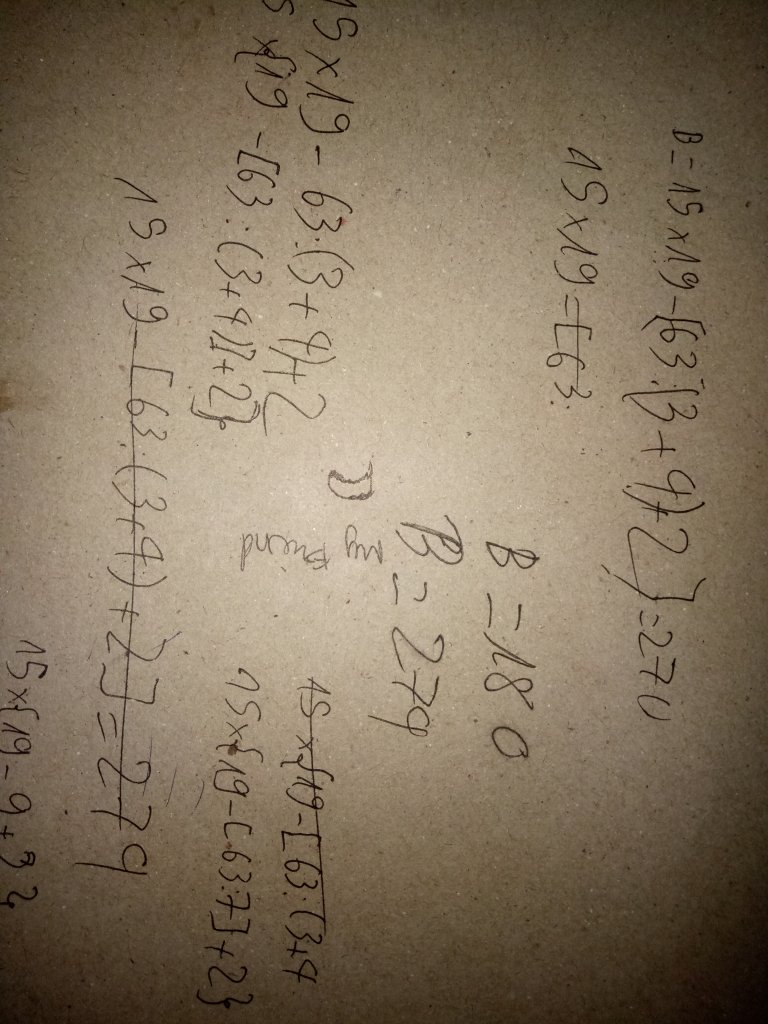 B = 15 x 19 - [63 : (3 + 4) + 2] = 270
15 x 19 = [63 :
B = 180
B = 279
15 x 19 - 63 : (3 + 4) + 2
x {19 - [63 : (3 + 4)] + 2}
my Friend
15 x {19 - [63 : (3 + 4
15 x {19 - [63 : 7] + 2}
15 x 19 - [63 : (3 + 4) + 2] = 279
15 x {19 - 9 +